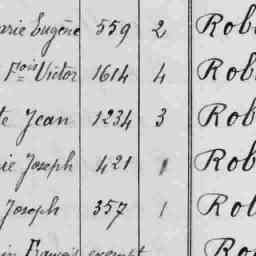 arie Eugène 559 2 Rob
Fçois Victor 1614 4 Rob
te Jean 1234 3 Rob
ie Joseph 421 1 Rob
Joseph 357 1 Rob
in François exempt Ro